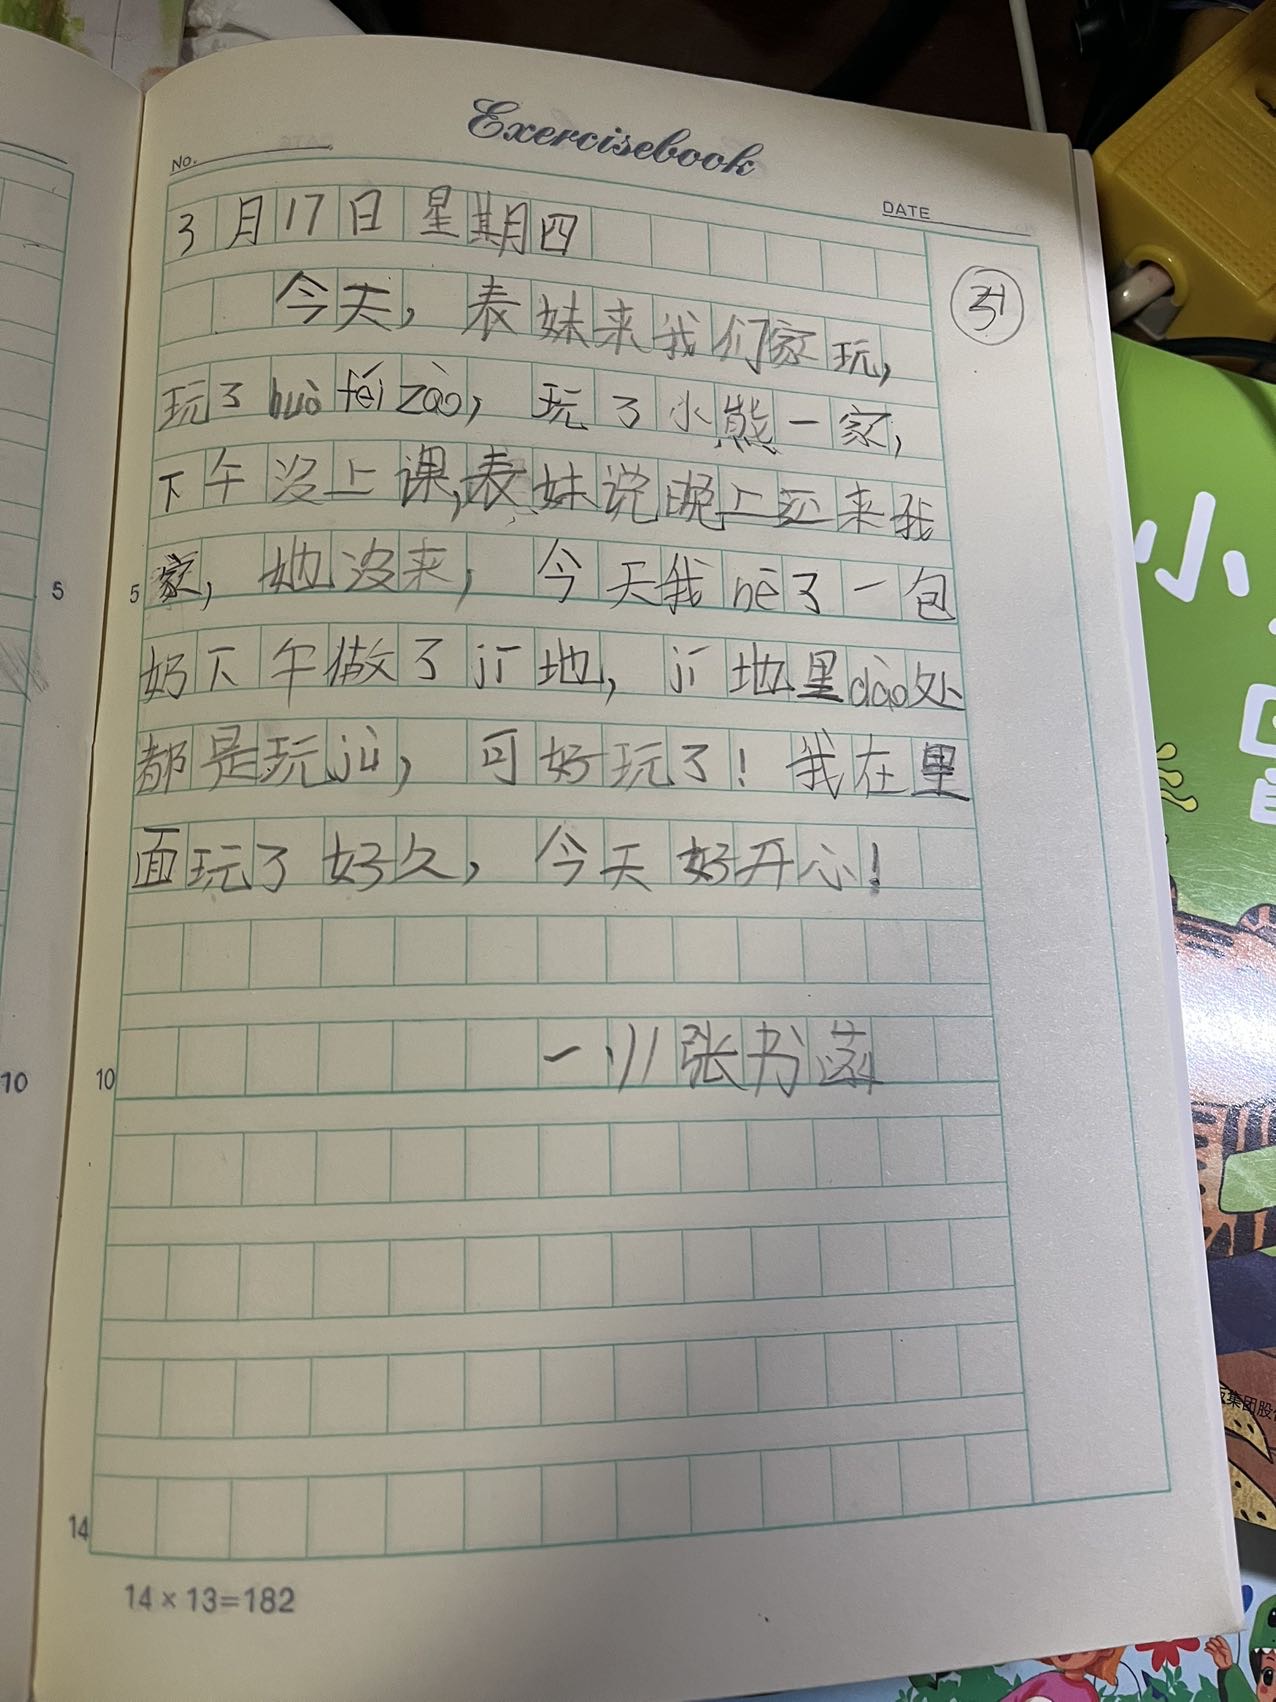 Exercisebook
NO.
DATE
3月17日 星期四
今天，表妹来我们家玩，
玩了huò féi zào，玩了小熊一家，
下午没上课，表妹说晚上还来我
家，她没来，今天我hē了一包
奶下午做了jī地，jī地里dào处
都是玩jù，可好玩了！我在里
面玩了好久，今天好开心！
一·11张书菡
5
5
10
10
14
14×13=182
小
集团股